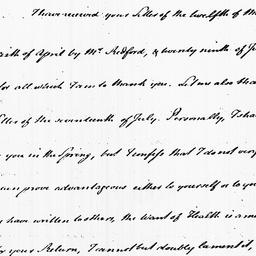 I have received your Letter of the twelfth of M
of April by Mr. Redford, & twenty ninth of Ju
for all which I am to thank you. Let me also tha
Letter of the seventeenth of July. Personally, I sha
you in the Spring, but I confess that I do not very
can prove advantageous either to yourself or to yo
have written to others, the Want of Health is a me
your Return, I cannot but doubly lament it,